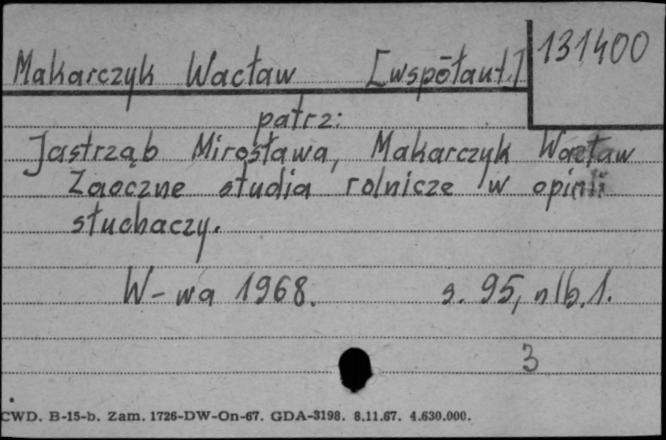 Makarczyk Wacław [współaut.] 131400
patrz:
Jastrząb Mirosława, Makarczyk Wacław
Zaoczne studia rolnicze w opinii
słuchaczy.
W-wa 1968. s. 95, nlb. 1.
3
CWD. B-15-b. Zam. 1726-DW-On-67. GDA-3198. 8.11.67. 4.630.000.